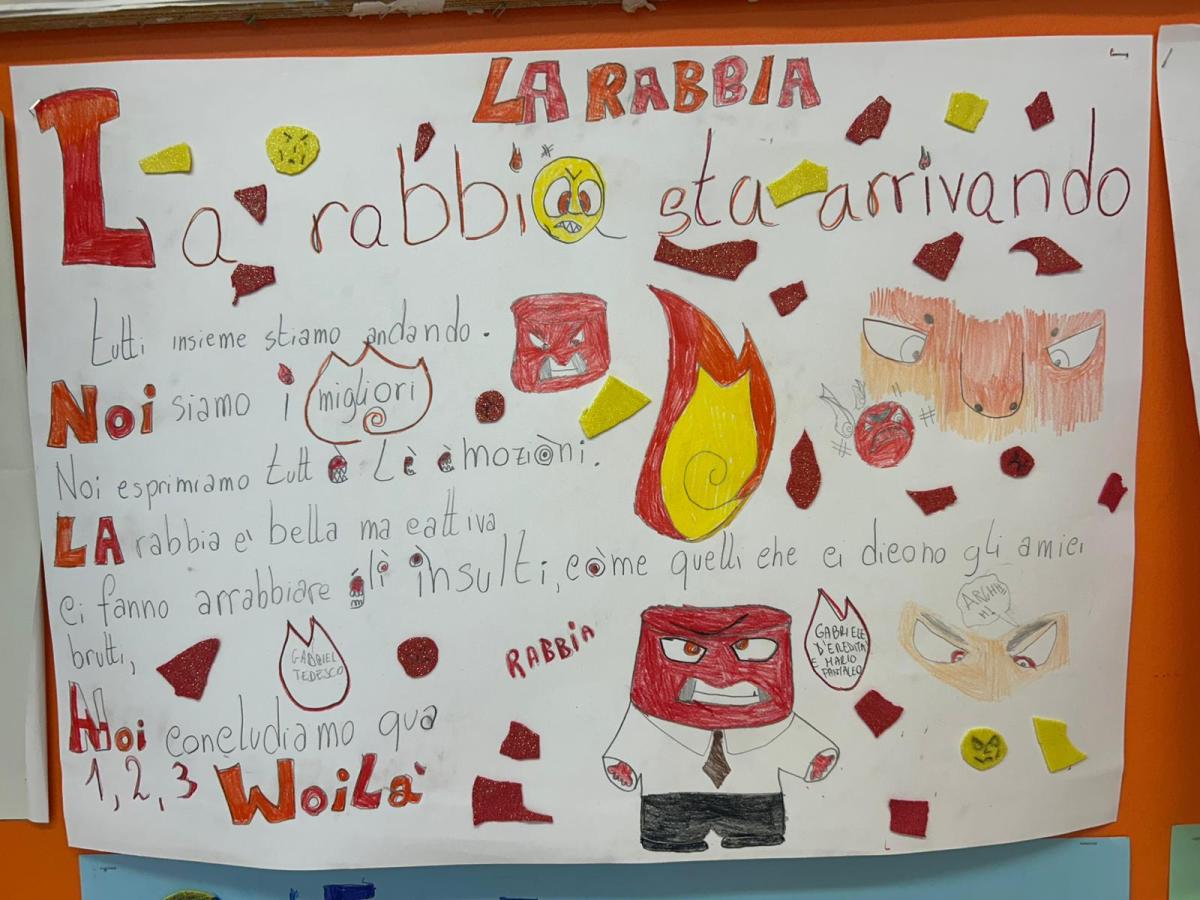 LA RABBIA
La rabbia sta arrivando
tutti insieme stiamo andando.
Noi siamo i migliori
Noi esprimiamo tutte le emozioni.
LA rabbia e' bella ma cattiva
ci fanno arrabbiare gli insulti, come quelli che ci dicono gli amici
brutti,
ARGHH
H!
GABRIEL
TEDESCO
RABBIA
GABRIELE
D'EREDITA'
E MARIO
PANTALEO
Noi concludiamo qua
1, 2, 3 WOiLa'